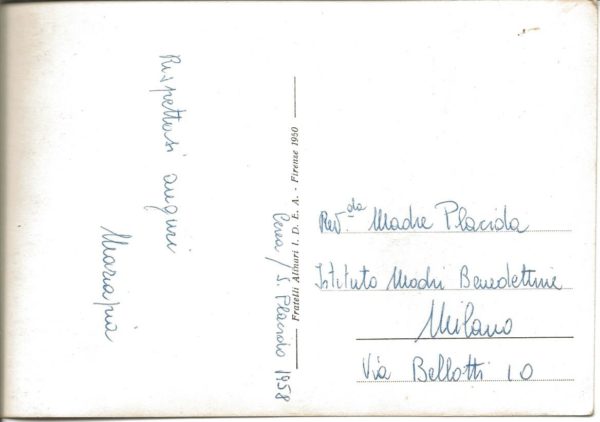 Rispettosi auguri
Mariapia
Cerea / S. Placido 1958
Fratelli Alinari I. D. E. A. - Firenze 1950
Rev.da Madre Placida
Istituto Madri Benedettine
Milano
Via Bellotti 10